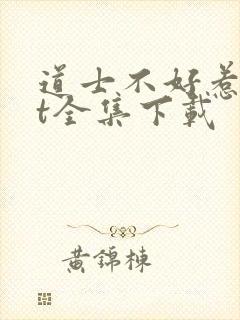 道士不好惹
t全集下载
黄锦栋